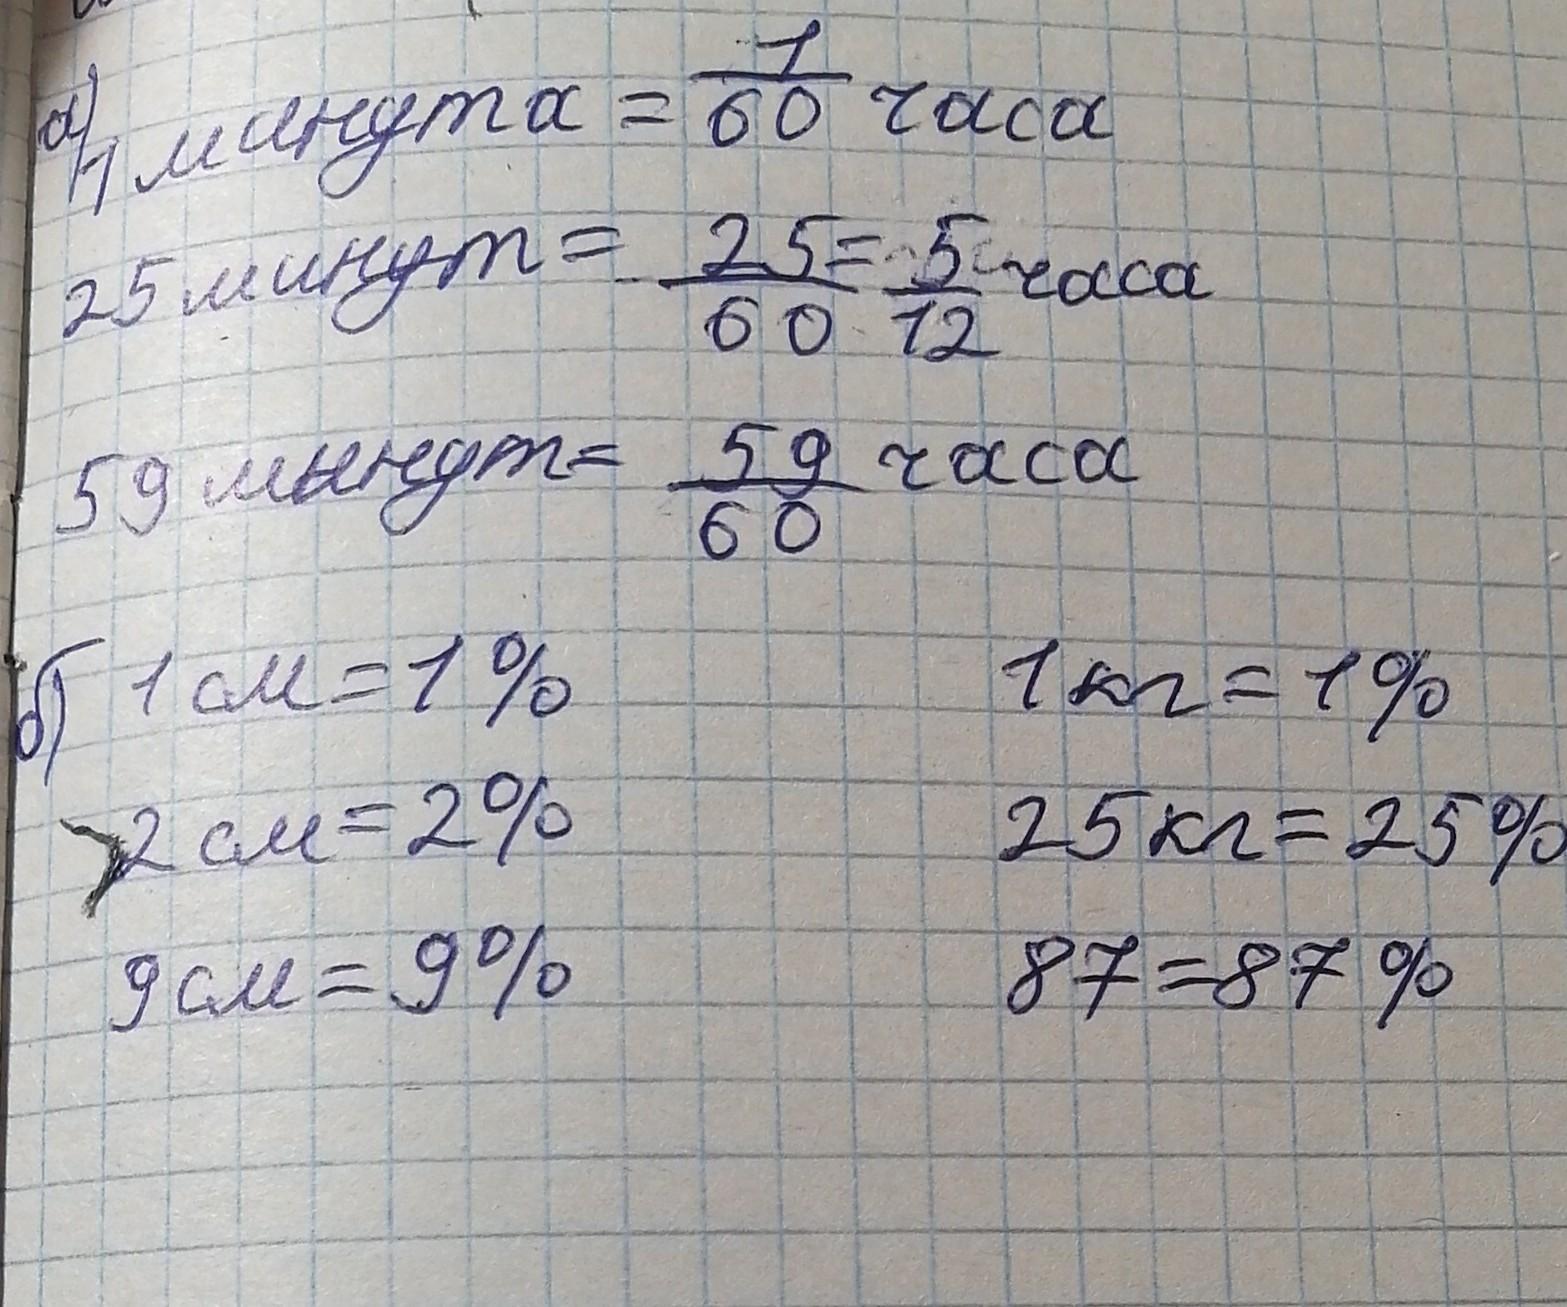 а) 1 минута = 1/60 часа
25 минут = 25/60 = 5/12 часа
59 минут = 59/60 часа
б) 1 см = 1% 1 кг = 1%
2 см = 2% 25 кг = 25%
9 см = 9% 87 = 87%